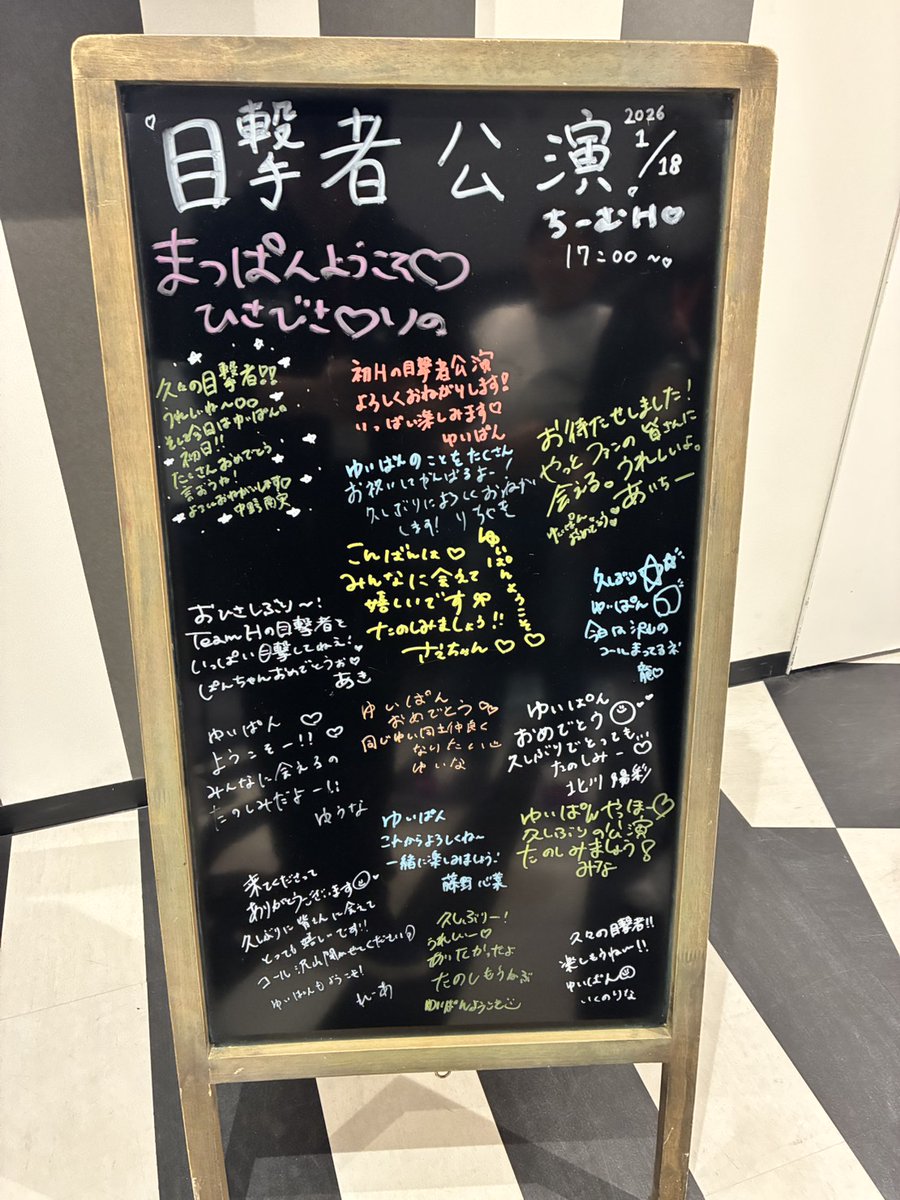 目撃者公演
2026
1/18
ちーむH♡
17:00～
まっぱんようこそ♡
ひさびさ♡りの
久々の目撃者!!
うれしいね～♡♡
そして今日はゆいぱん。
初日!!
たくさんおめでとう
言おうね!
よろしくおねがいします♡
初Hの目撃者公演
よろしくおねがいします!
いっぱい楽しみます♡
ゆいぱん
ゆいぱんのことをたくさん
お祝いしてがんばるよー!
久しぶりによろしくおねがい
します!
お待たせしました!
やっとファンの皆さんに
会える。うれしいよ。
ゆいぱん
おめでとう♡
あいちー
こんばんは♡
みんなに会えて
嬉しいです
たのしみましょう!!
さえちゃん♡
ゆいぱんようこそ♡♡
おひさしぶり～!
Team Hの目撃者を
いっぱい目撃してねえ!
ぱんちゃんおめでとうぉ♡
あき
久しぶり☆
ゆいぱん
今日は沢山の
コールまってるネ
龍♡
ゆいぱん♡
ようこそー!!
みんなに会えるの
たのしみだよー!!
ゆうな
ゆいぱん
おめでとう♡
同じゆい同士仲良く
なりたい
ゆいな
ゆいぱん
おめでとう
久しぶりでとっても…
たのしみー♡
北川陽彩
ゆいぱん
これからよろしくね～
一緒に楽しみましょう!
藤野心葉
ゆいぱんやっほー♡
久しぶりの公演
たのしみましょう!
みな
来てくださって
ありがとうございます
久しぶりに皆さんに会えて
とっても嬉しいです!!
コール沢山聞かせてください
ゆいぱんもようこそ!
れーあ
久しぶりー!
うれしいー♡
あいたかったよ
たのしもうねぶ
ゆいぱんようこそ
久々の目撃者!!
楽しもうねー!!
ゆいぱん
いくのりな